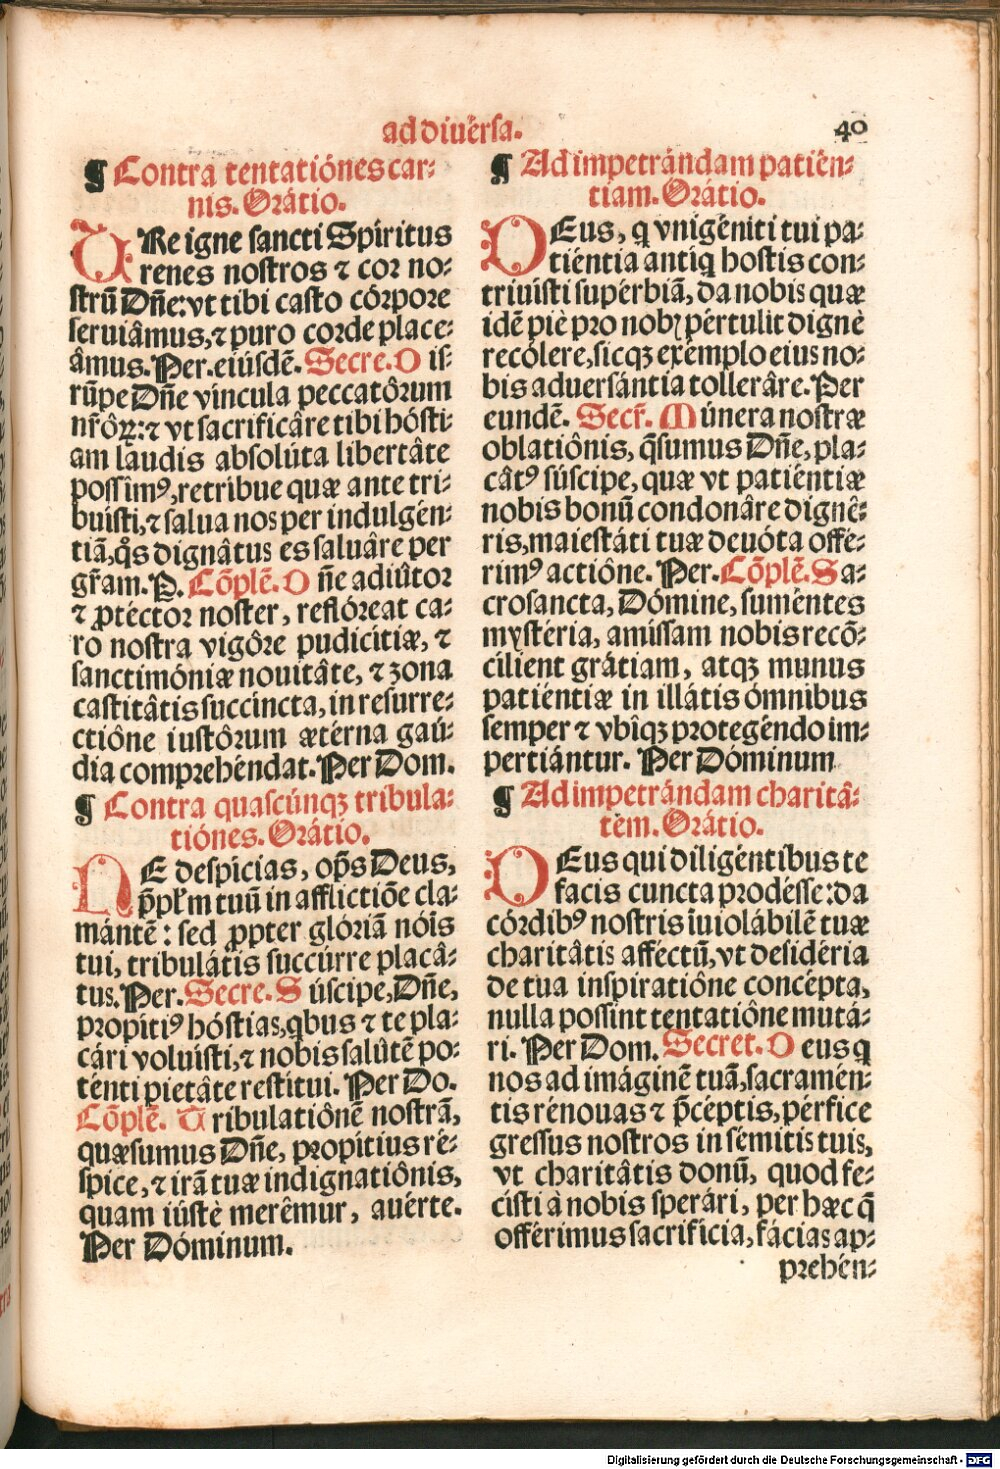 ad diuẽrsa.
40
¶ Contra tentatiónes car-
nis. Orátio.
VRe igne sancti Spíritus
renes nostros ⁊ cor no-
strũ Dñe: vt tibi casto córpore
seruiâmus, ⁊ puro corde place-
âmus. Per. eiúsdẽ. Secre. D is-
rũpe Dñe víncula peccatôrum
nr̃ôꝝ: ⁊ vt sacrificâre tibi hósti-
am laudis absolúta libertâte
possîmꝰ, retribue quæ ante tri-
buisti, ⁊ salua nos per indulgén-
tiã, q̃s dignâtus es saluâre per
gr̃am. P. Cõplẽ. D ñe adiûtor
⁊ ꝓtéctor noster, reflóreat ca-
ro nostra vigôre pudicitiæ, ⁊
sanctimóniæ nouitâte, ⁊ zona
castitâtis succincta, in resurre-
ctiône iustôrum ætérna gaú-
dia comprehéndat. Per Dom.
¶ Contra quascúnqꝫ tribula-
tiónes. Orátio.
NE despícias, op̃s Deus,
p̃pl̃m tuũ in afflictiõe cla-
mántẽ: sed ꝓpter glóriã nóis
tui, tribulátis succúrre placâ-
tus. Per. Secre. S úscipe, Dñe,
propítiꝰ hóstias, qbus ⁊ te pla-
cári voluisti, ⁊ nobis salûtẽ po-
ténti pietâte restítui. Per Do.
Cõplẽ. T ribulatiônẽ nostrã,
quæsumus Dñe, propítius ré-
spice, ⁊ irã tuæ indignatiônis,
quam iústè merêmur, auérte.
Per Dóminum.
¶ Ad impetrándam patiẽn-
tiam. Orátio.
DEus, q vnigéniti tui pa-
tiéntia antiq hostis con-
triuísti supérbiã, da nobis quæ
idẽ piè pro nobꝭ pértulit dignè
recólere, sicqꝫ exémplo eius no-
bis aduersántia tollerâre. Per
eundẽ. Secr̃. M únera nostræ
oblatiônis, q̃sumus Dñe, pla-
câtꝰ súscipe, quæ vt patiéntiæ
nobis bonũ condonâre dignê-
ris, maiestáti tuæ deuóta offé-
rimꝰ actiône. Per. Cõplẽ. S a-
crosancta, Dómine, suméntes
mystéria, amíssam nobis recõ-
cilient grátiam, atqꝫ munus
patiéntiæ in illátis ómnibus
semper ⁊ vbîqꝫ protegéndo im-
pertiántur. Per Dóminum
¶ Ad impetrándam charitâ-
tem. Orátio.
DEus qui diligéntibus te
facis cuncta prodésse: da
córdibꝰ nostris ĩuiolábilẽ tuæ
charitâtis afféctũ, vt desidéria
de tua inspiratiône concépta,
nulla possint tentatiône mutá-
ri. Per Dom. Secret. D eus q
nos ad imáginẽ tuã, sacramén-
tis rénouas ⁊ p̃céptis, pérfice
gressus nostros in sémitis tuis,
vt charitâtis donũ, quod fe-
císti à nobis sperári, per hæc q̃
offérimus sacrifícia, fácias ap-
prehén-
Digitalisierung gefördert durch die Deutsche Forschungsgemeinschaft - DFG